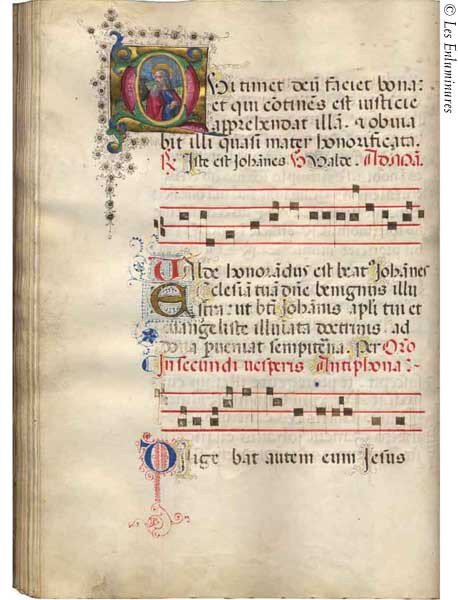 Qui timet deū faciet bona:
et qui cōtinēs est iusticie
apprehendet illā. & obvia
bit illi quasi mater honorificata.
R Iste est Johānes V Valde. Ad nonā.
Valde honorādus est beat' Johānes
Ecclesiā tuā dñe benignus illu
stra: ut bti Johānis apli tui et
euangeliste illuīata doctrinis ad
dona pueniat sempitēna. Per Oro
In secundis uesperis Antiphona:
Dilige bat autem eum Jesus
© Les Enluminures